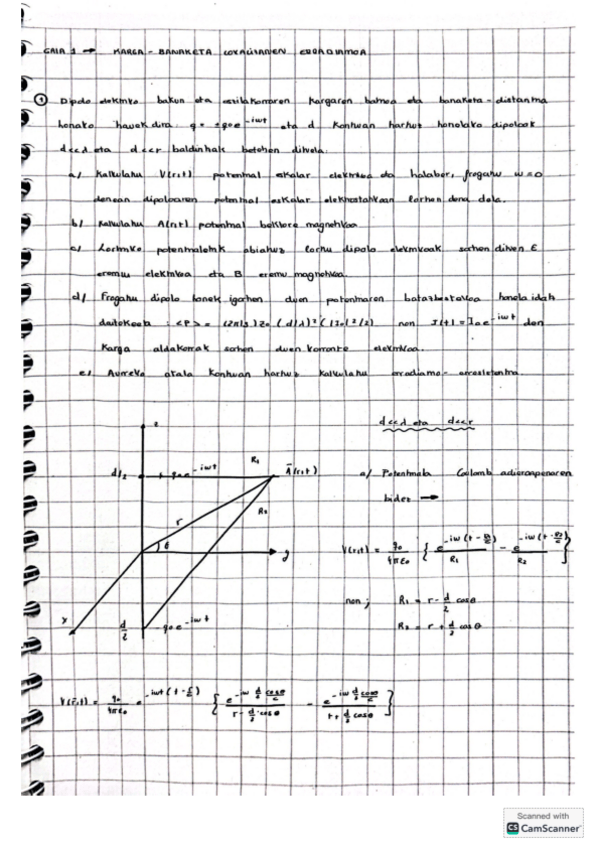 GAIA 1 → KARGA-BANAKETA LOKALIZATUEN ERRADIAZIOA
① Dipolo elektriko bakun eta oszilakorraren kargaren balioa eta banaketa-distantzia
honako hauek dira: q = ±q₀e^-iwt eta d. Kontuan hartuz honelako dipoloak
d<<λ eta d<<r baldintzak betetzen dituela:
a/ Kalkulatu V(r,t) potentzial eskalar elektrikoa eta halaber, frogatu w=0
denean dipoloaren potentzial eskalar elektrostatikoan lortzen dena dela.
b/ Kalkulatu A(r,t) potentzial bektore magnetikoa
c/ Lortutako potentzialetatik abiatuz lortu dipolo elektrikoak sortzen dituen E
eremu elektrikoa eta B eremu magnetikoa.
d/ Frogatu dipolo honek igortzen duen potentziaren batazbestekoa honela idatz
daitekeela: <P> = (2π/3) Z₀ (d/λ)² (|I₀|²/2) non I(t) = I₀ e^-iwt den
karga aldakorrak sortzen duen korronte elektrikoa.
e/ Aurreko atala kontuan hartuz kalkulatu erradiazio-erresistentzia.
z
d<<λ eta d<<r
d/2
q₀e^-iwt
R₁
A(r,t)
a/ Potentziala Coulomb adierazpenaren
bidez →
r
R₂
θ
y
V(r,t) = q₀/4πε₀ { e^-iw(t-R₁/c)/R₁ - e^-iw(t-R₂/c)/R₂ }
x
non; R₁ = r - d/2 cosθ
d/2
-q₀e^-iwt
R₂ = r + d/2 cosθ
V(r,t) = q₀/4πε₀ e^-iwt(t-r/c) { e^-iw d/2 cosθ/c / r - d/2·cosθ - e^-iw d/2 cosθ/c / r + d/2 cosθ }
Scanned with
CS CamScanner